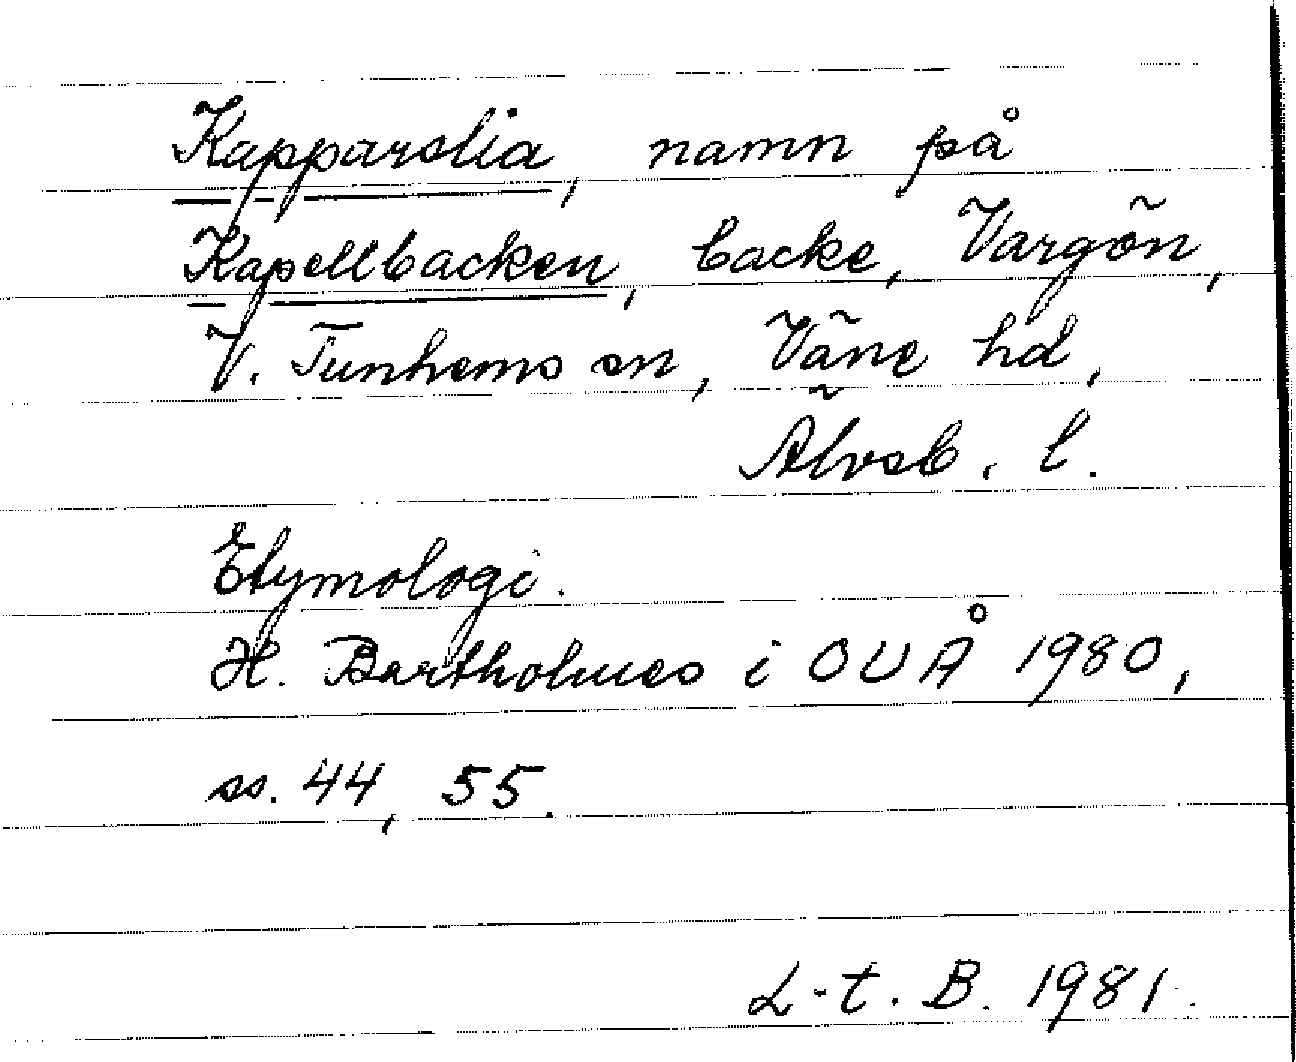 Kapparslia, namn på
Kapellbacken, backe, Vargön,
V. Tunhems sn, Väne hd,
Älvsb. l.
Etymologi.
H. Bartholmes i OUÅ 1980,
ss. 44, 55.
L-t. B. 1981.